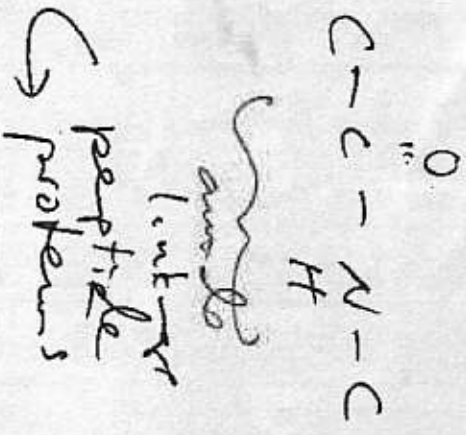 O
C-C-N-C
H
amide
linkage
peptide
proteins